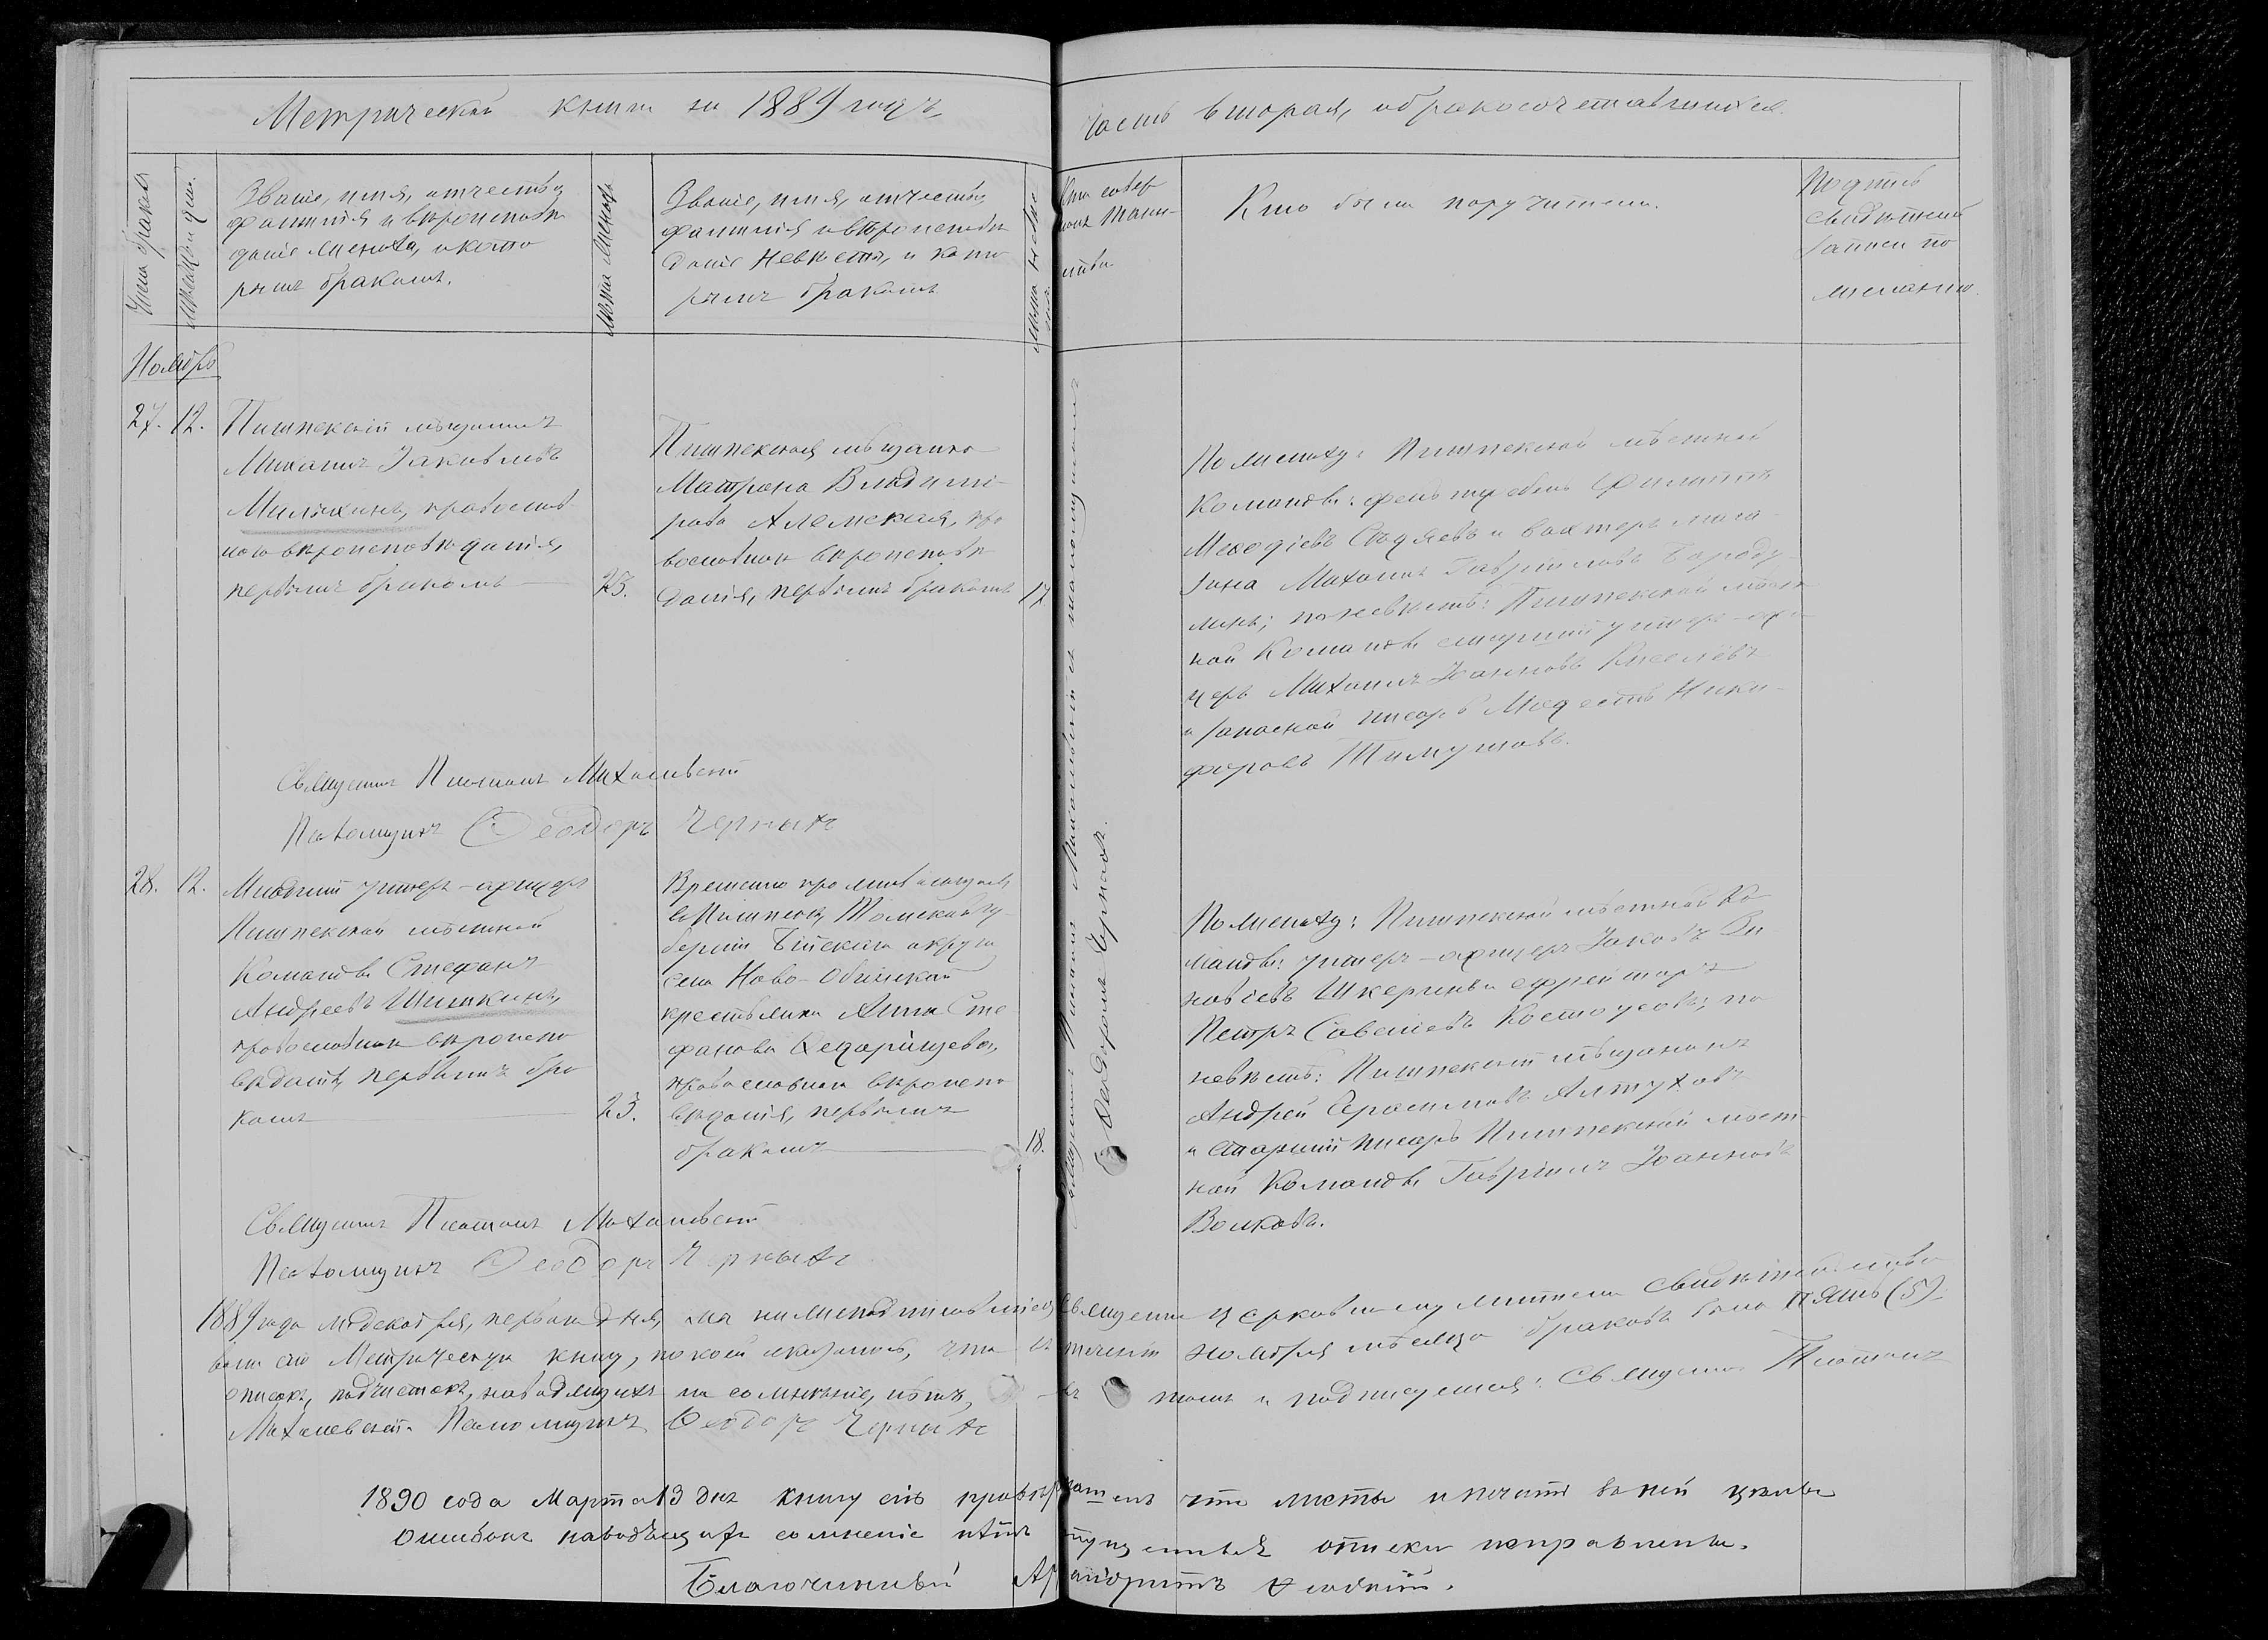 Метрической книги на 1889 годъ,
часть вторая, о бракосочетавшихся.
Счетъ браковъ
Мѣсяцъ и день.
Званіе, имя, отчество,
фамилія и вѣроисповѣ
даніе жениха, и кото
рымъ бракомъ.
Лѣта жениха
Званіе, имя, отчество,
фамилія и вѣроисповѣ
даніе невѣсты, и кото
рымъ бракомъ
Лѣта невѣс
ты
Кто совер
шалъ таин-
ство
Кто были поручители.
Подпись
свидѣтелей
записи по
желанію.
Ноябрь
27. 12.
Пишпекскій мѣщанинъ
Михаилъ Іаковлевъ
православ
наго вѣроисповѣданія,
первымъ бракомъ
25.
Пишпекская мѣщанка
Матрона Владимі-
рова пра
вославнаго вѣроисповѣ
данія, первымъ бракомъ
17
По женихѣ: Пишпекской мѣстной
Команды: фельдфебель Филиппъ
Меѳодіевъ и вахтеръ мага
зина Михаилъ Гавриловъ Бороду-
линъ; по невѣстѣ: Пишпекской мѣст
ной Команды старшій унтеръ-офи-
церъ Михаилъ Іоанновъ Киселевъ
и запасной писарь Модестъ Ники-
форовъ
Священникъ Платонъ Михалевскій
Псаломщикъ Ѳеодоръ Черныхъ
28. 12.
Младшій унтеръ-офицеръ
Пишпекской мѣстной
Команды Стефанъ
Андреевъ Шишкинъ,
православнаго вѣроиспо
вѣданія, первымъ бра
комъ
23.
Временно проживающая
в Пишпекѣ, Томской гу-
берніи Бійскаго округа
села Ново-Обинской
крестьянка Анна Сте
фанова
православнаго вѣроиспо
вѣданія, первымъ
бракомъ
18.
По женихѣ: Пишпекской мѣстной Ко
манды: унтеръ-офицеръ Іаковъ Зи-
новіевъ и ефрейторъ
Петръ Савельевъ Костоусовъ; по
невѣстѣ: Пишпекскій мѣщанинъ
Андрей Герасимовъ Алтуховъ
и старшій писарь Пишпекской мѣст-
ной Команды Гавріилъ Іоанновъ
Волковъ.
Священникъ Платонъ Михалевскій съ псаломщикомъ
Ѳеодоромъ Черныхъ.
Священникъ Платонъ Михалевскій
Псаломщикъ Ѳеодоръ Черныхъ
1889 года Декабря, перваго дня, мы нижеподписавшіеся, священно церковнослужители свидѣтельство
вали сію Метрическую книгу, по коей оказалось, что въ теченіи ноября мѣсяца браковъ было пять (5).
описокъ, подчистокъ, наводящихъ на сомнѣніе, нѣтъ, въ томъ и подписуемся: Священникъ Платонъ
Михалевскій. Псаломщикъ Ѳеодоръ Черныхъ
1890 года Марта 13 дня книгу сію что листы и печать в ней цѣлы
ошибокъ наводящихъ сомнѣніе нѣтъ описки исправлены.
Благочинный